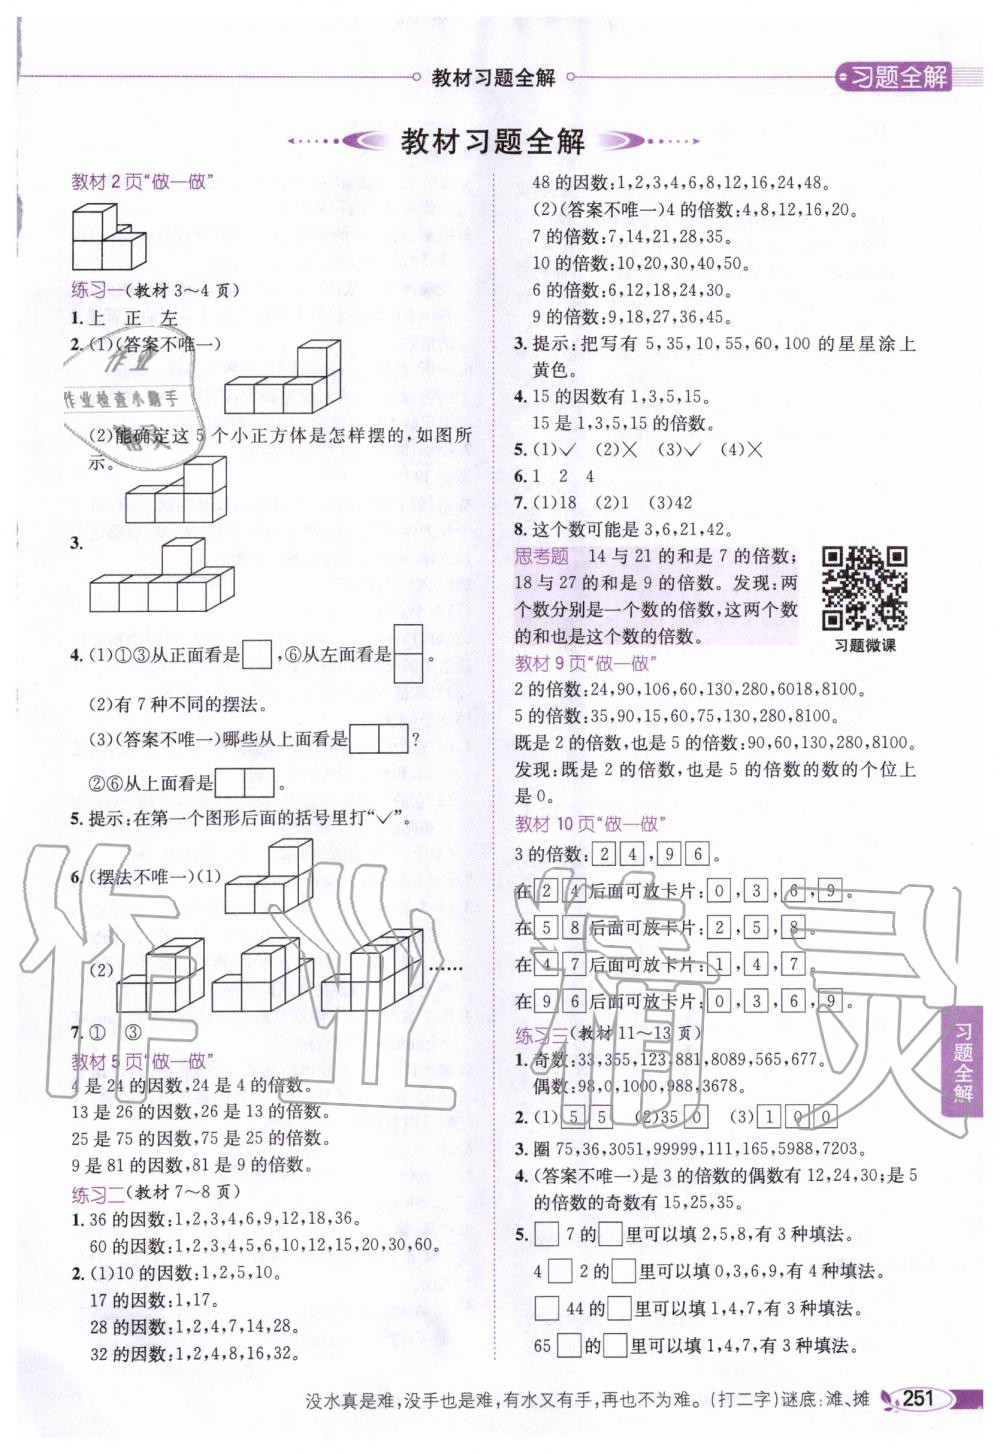 教材习题全解
习题全解
教材习题全解
教材 2 页“做一做”
练习一(教材 3～4 页)
1.上 正 左
2.(1)(答案不唯一)
(2)能确定这 5 个小正方体是怎样摆的,如图所
示。
3.
4.(1)①③从正面看是 ,⑥从左面看是 。
(2)有 7 种不同的摆法。
(3)(答案不唯一)哪些从上面看是 ?
②⑥从上面看是 。
5.提示:在第一个图形后面的括号里打“✓”。
6.(摆法不唯一)(1)
(2) ……
7.① ③
教材 5 页“做一做”
4 是 24 的因数,24 是 4 的倍数。
13 是 26 的因数,26 是 13 的倍数。
25 是 75 的因数,75 是 25 的倍数。
9 是 81 的因数,81 是 9 的倍数。
练习二(教材 7～8 页)
1.36 的因数:1,2,3,4,6,9,12,18,36。
60 的因数:1,2,3,4,5,6,10,12,15,20,30,60。
2.(1)10 的因数:1,2,5,10。
17 的因数:1,17。
28 的因数:1,2,4,7,14,28。
32 的因数:1,2,4,8,16,32。
48 的因数:1,2,3,4,6,8,12,16,24,48。
(2)(答案不唯一)4 的倍数:4,8,12,16,20。
7 的倍数:7,14,21,28,35。
10 的倍数:10,20,30,40,50。
6 的倍数:6,12,18,24,30。
9 的倍数:9,18,27,36,45。
3.提示:把写有 5,35,10,55,60,100 的星星涂上
黄色。
4.15 的因数有 1,3,5,15。
15 是 1,3,5,15 的倍数。
5.(1)✓ (2)✕ (3)✓ (4)✕
6.1 2 4
7.(1)18 (2)1 (3)42
8.这个数可能是 3,6,21,42。
思考题 14 与 21 的和是 7 的倍数;
18 与 27 的和是 9 的倍数。发现:两
个数分别是一个数的倍数,这两个数
的和也是这个数的倍数。
习题微课
教材 9 页“做一做”
2 的倍数:24,90,106,60,130,280,6018,8100。
5 的倍数:35,90,15,60,75,130,280,8100。
既是 2 的倍数,也是 5 的倍数:90,60,130,280,8100。
发现:既是 2 的倍数,也是 5 的倍数的数的个位上
是 0。
教材 10 页“做一做”
3 的倍数:2 4,9 6。
在 2 4 后面可放卡片:0,3,6,9。
在 5 8 后面可放卡片:2,5,8。
在 4 7 后面可放卡片:1,4,7。
在 9 6 后面可放卡片:0,3,6,9。
练习三(教材 11～13 页)
1.奇数:33,355,123,881,8089,565,677。
偶数:98,0,1000,988,3678。
2.(1)5 5 (2)35 0 (3)1 0 0
3.圈 75,36,3051,99999,111,165,5988,7203。
4.(答案不唯一)是 3 的倍数的偶数有 12,24,30;是 5
的倍数的奇数有 15,25,35。
5.□ 7 的□里可以填 2,5,8,有 3 种填法。
4 □ 2 的□里可以填 0,3,6,9,有 4 种填法。
□ 44 的□里可以填 1,4,7,有 3 种填法。
65 □的□里可以填 1,4,7,有 3 种填法。
习题全解
没水真是难,没手也是难,有水又有手,再也不为难。(打二字)谜底:滩、摊
251
作业
作业检查小助手
精灵
作业精灵